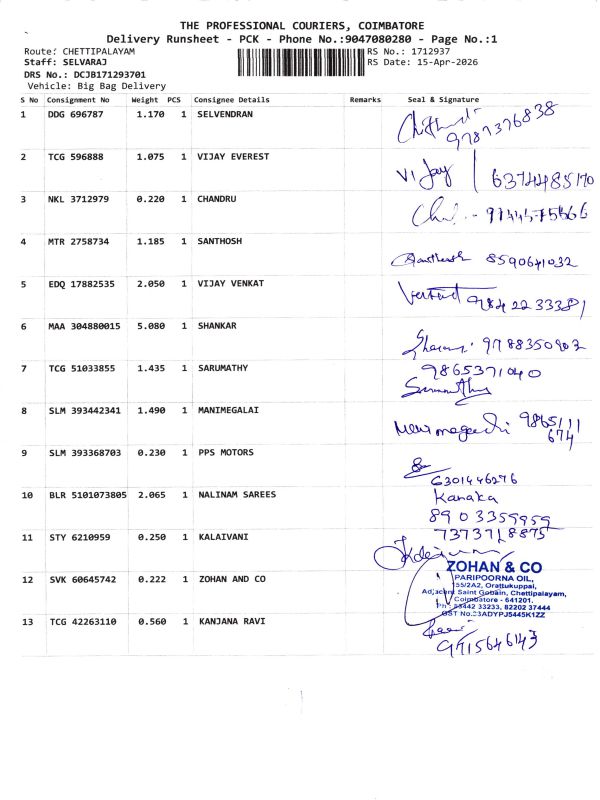 THE PROFESSIONAL COURIERS, COIMBATORE
Delivery Runsheet - PCK - Phone No.:9047080280 - Page No.:1
Route: CHETTIPALAYAM
RS No.: 1712937
Staff: SELVARAJ
RS Date: 15-Apr-2026
DRS No.: DCJB171293701
Vehicle: Big Bag Delivery
S No Consignment No Weight PCS Consignee Details Remarks Seal & Signature
1 DDG 696787 1.170 1 SELVENDRAN
9787376838
2 TCG 596888 1.075 1 VIJAY EVEREST
Vijay 6374485170
3 NKL 3712979 0.220 1 CHANDRU
4 MTR 2758734 1.185 1 SANTHOSH
Santhosh 8590641032
5 EDQ 17882535 2.050 1 VIJAY VENKAT
9842233381
6 MAA 304880015 5.080 1 SHANKAR
9788350903
7 TCG 51033855 1.435 1 SARUMATHY
9865371040
Sarumathy
8 SLM 393442341 1.490 1 MANIMEGALAI
9865111
674
9 SLM 393368703 0.230 1 PPS MOTORS
6301446276
10 BLR 5101073805 2.065 1 NALINAM SAREES
Kanaka
8903359959
11 STY 6210959 0.250 1 KALAIVANI
7373718875
12 SVK 60645742 0.222 1 ZOHAN AND CO
ZOHAN & CO
PARIPOORNA OIL,
55/2A2, Orattukuppai,
Adjacent Saint Gobain, Chettipalayam,
Coimbatore - 641201.
Ph: 93442 33233, 82202 37444
GST No.33ADYPJ5445K1ZZ
13 TCG 42263110 0.560 1 KANJANA RAVI
9715646143